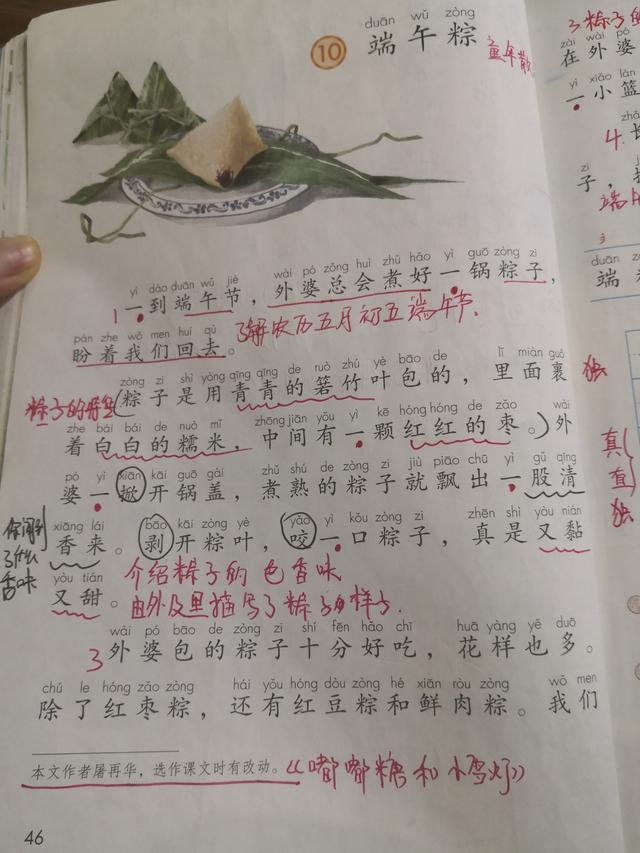 duān wǔ zòng
10 端午粽
童年散
yí dào duān wǔ jié, wài pó zǒng huì zhǔ hǎo yì guō zòng zi
1 一到端午节，外婆总会煮好一锅粽子，
pàn zhe wǒ men huí qù
盼着我们回去。了解农历五月初五端午节.
zòng zi shì yòng qīng qīng de ruò zhú yè bāo de lǐ miàn guǒ
粽子的 粽子是用青青的箬竹叶包的，里面裹
zhe bái bái de nuò mǐ zhōng jiān yǒu yì kē hóng hóng de zǎo wài
着白白的糯米，中间有一颗红红的枣。外
pó yì xiān kāi guō gài zhǔ shú de zòng zi jiù piāo chū yì gǔ qīng
婆一掀开锅盖，煮熟的粽子就飘出一股清
xiāng lái bāo kāi zòng yè yǎo yì kǒu zòng zi zhēn shì yòu nián
香来。剥开粽叶，咬一口粽子，真是又黏
yòu tián
又甜。介绍粽子的色香味
你闻到
了什么
香味
由外及里描写了粽子的样子.
wài pó bāo de zòng zi shí fēn hǎo chī huā yàng yě duō
3 外婆包的粽子十分好吃，花样也多。
chú le hóng zǎo zòng hái yǒu hóng dòu zòng hé xiān ròu zòng wǒ men
除了红枣粽，还有红豆粽和鲜肉粽。我们
本文作者屠再华，选作课文时有改动。《嘟嘟糖和小雪灯》
46
3粽子的
zài wài pó
在外婆
yì xiǎo lán
一小篮
4.
zi
子，
端午
duān
端
独
真
直
独